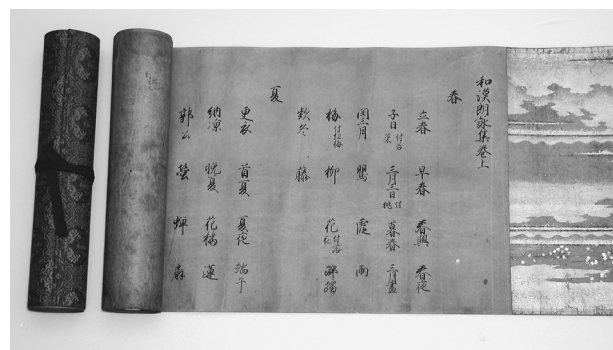 和漢朗詠集巻上
春
立春 早春 春興 春夜
子日付若菜 三月三日付桃 暮春 三月盡
閏三月 鶯 霞 雨
梅付紅梅 柳 花付落花 躑躅
欵冬 藤
夏
更衣 首夏 夏夜 端午
納凉 晩夏 花橘 蓮
郭公 螢 蝉 扇